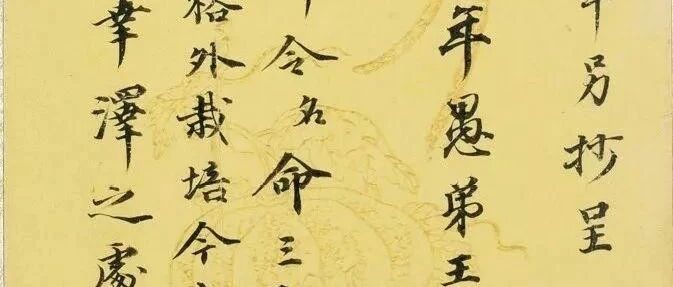 另抄呈
年愚弟王
令名命三
格外栽培今
幸澤之處